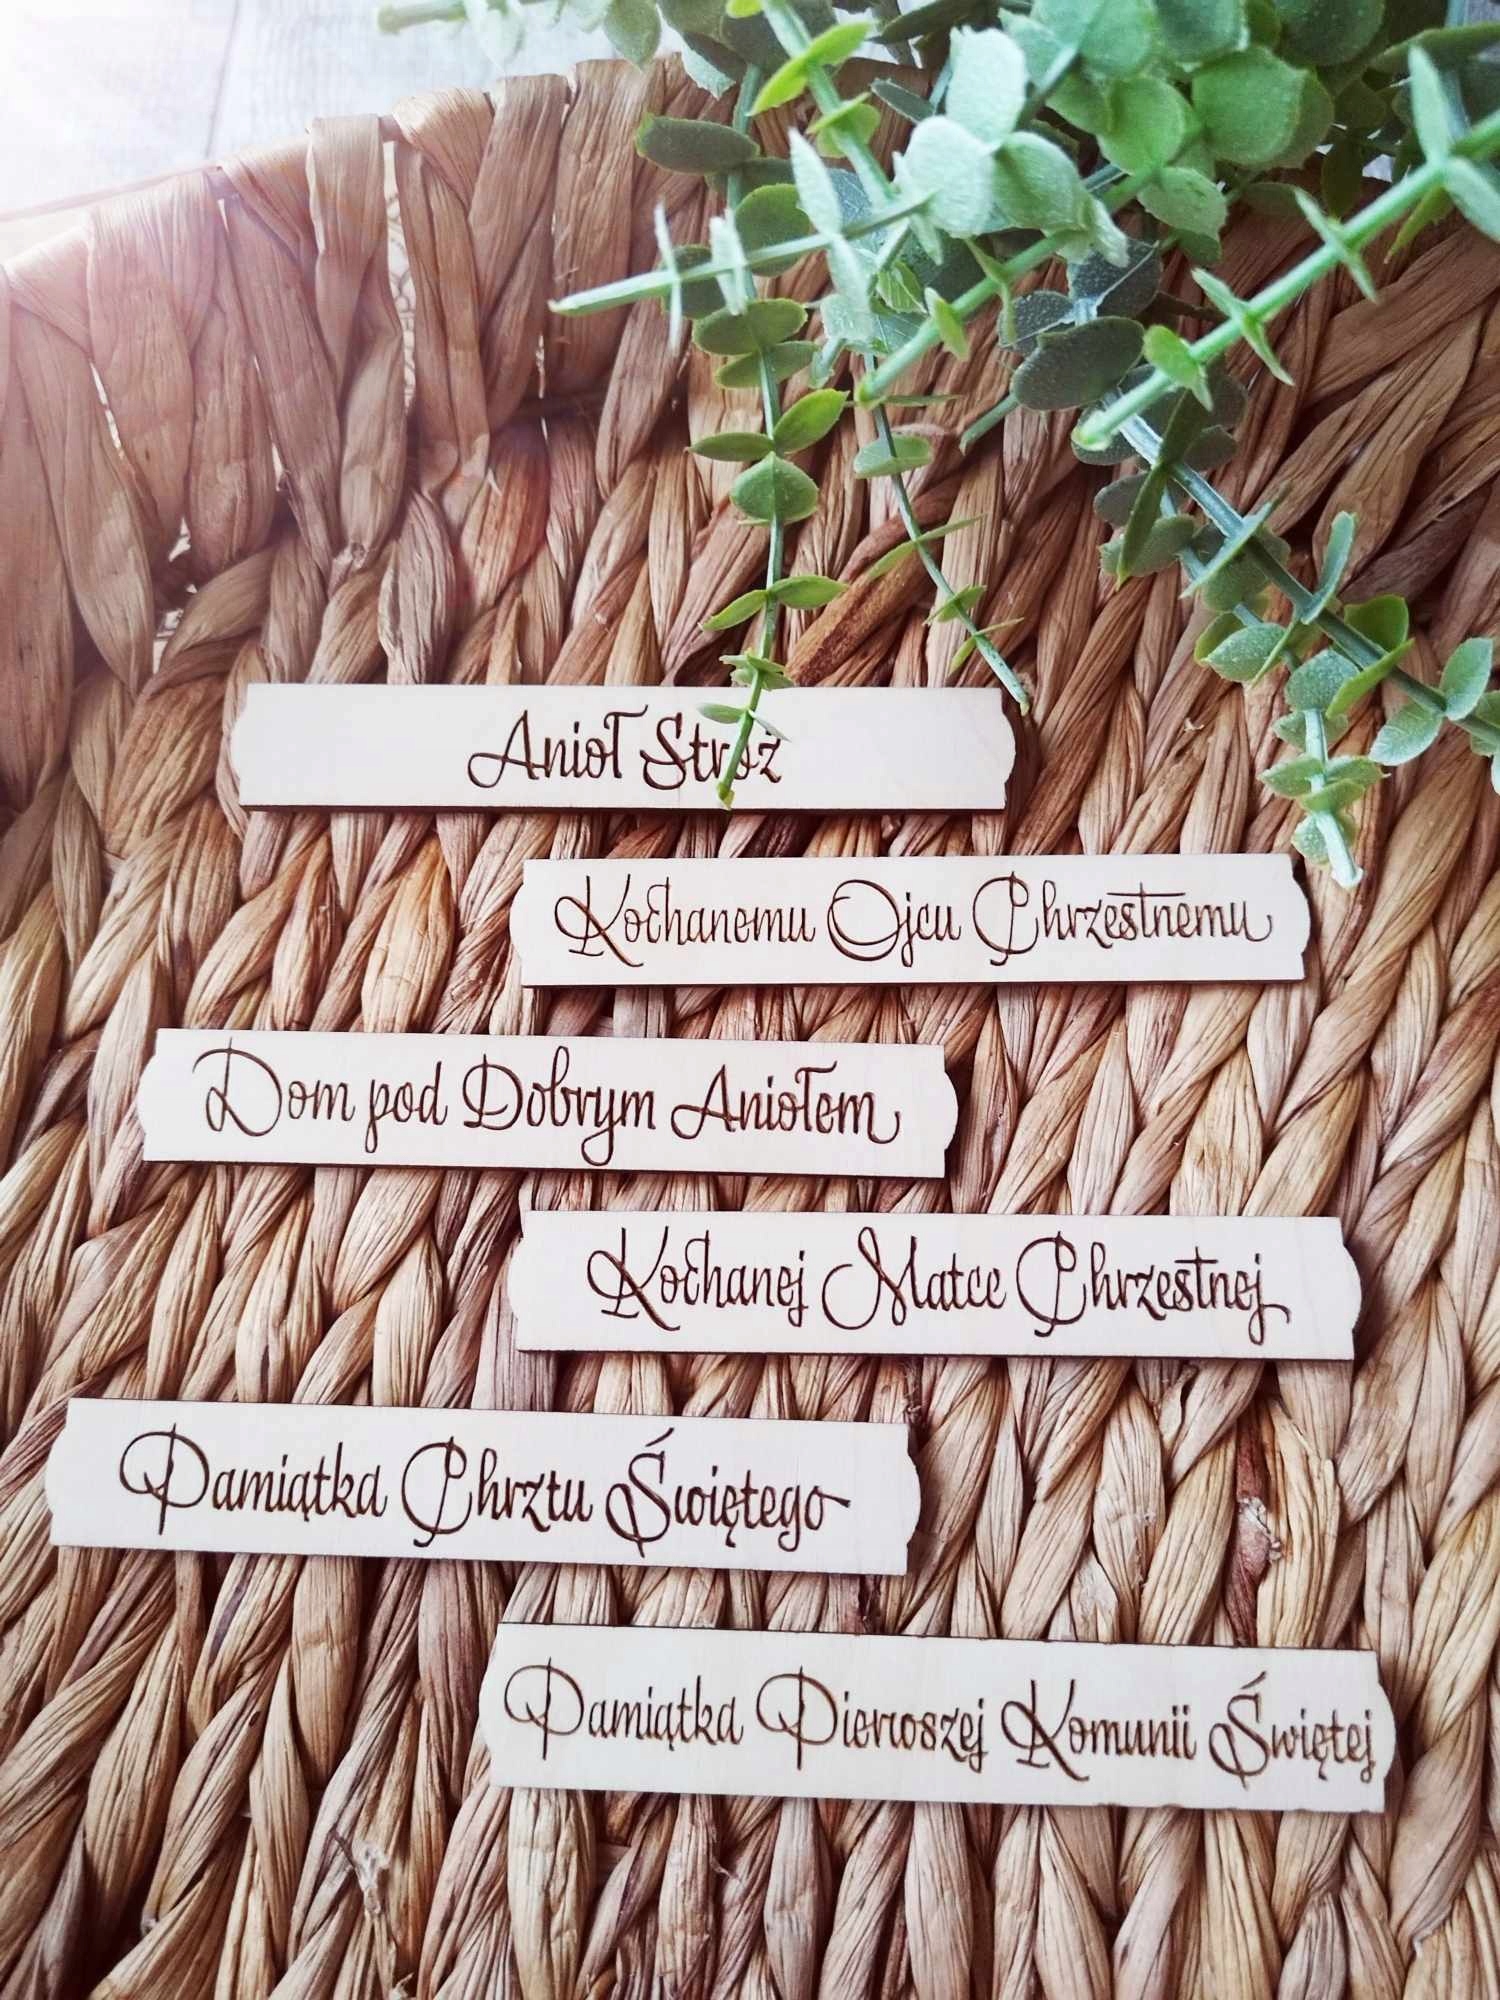 Anioł Stróż
Kochanemu Ojcu Chrzestnemu
Dom pod Dobrym Aniołem
Kochanej Matce Chrzestnej
Pamiątka Chrztu Świętego
Pamiątka Pierwszej Komunii Świętej